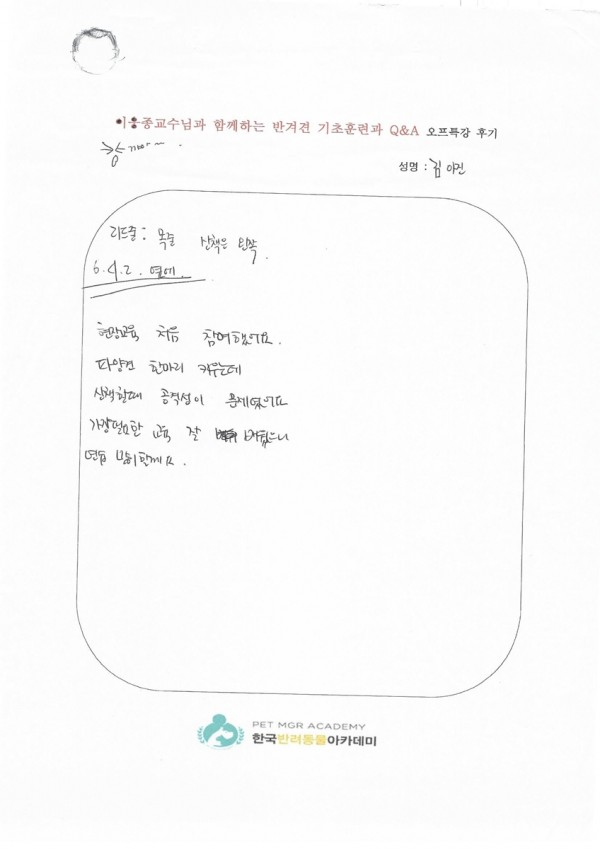 이웅종교수님과 함께하는 반겨견 기초훈련과 Q&A 오프특강 후기
성명 : 김아진
리드줄: 목줄 산책은 왼쪽
6.4.2. 옆에.
현장교육 처음 참여했어요.
파양견 한마리 키우는데
산책할때 공격성이 문제였어요
가장필요한 교육 잘 받았으니
연습 많이할께요.
PET MGR ACADEMY
한국반려동물아카데미